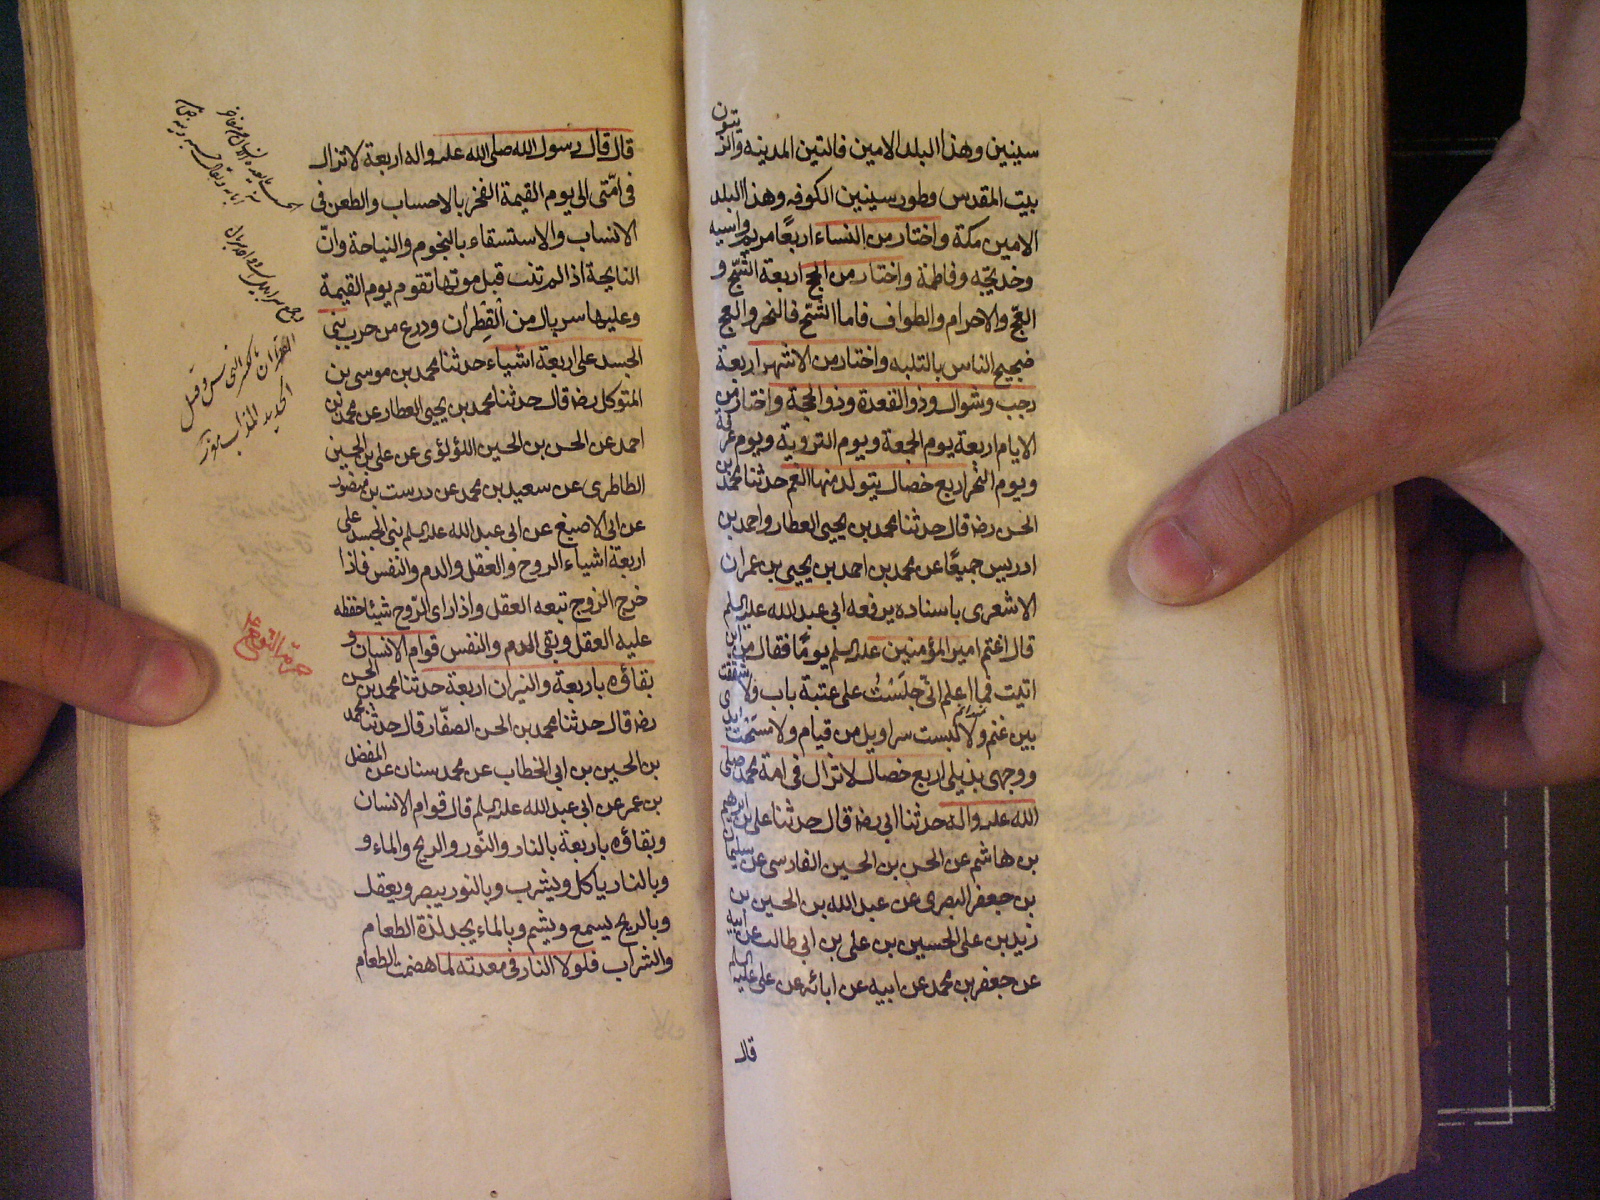 سينين وهذا البلد الامين فالتين المدينه والزيتون
بيت المقدس وطور سينين الكوفه وهذا البلد
الامين مكة واختار من النساء اربعًا مريم واسيه
وخديجه وفاطمة واختار من الحج اربعة الثج و
العج والاحرام والطواف فاما الثج فالنحر والعج
ضجيج الناس بالتلبيه واختار من الاشهر اربعة
رجب وشوال وذو القعدة وذو الحجة واختار من
الايام اربعة يوم الجمعة ويوم التروية ويوم عرفة
ويوم النحر اربع خصال يتولد منها الغم حدثنا محمد بن
الحسن رضه قال حدثنا محمد بن يحيى العطار واحمد بن
ادريس جميعًا عن محمد بن احمد بن يحيى بن عمران
الاشعرى باسناده يرفعه ابى عبد الله عليه السلم
قال اغتم امير المؤمنين عليه السلم يومًا فقال من اين
اتيت فما اعلم انى جلست على عتبة باب ولا شققت
بين غنم ولا لبست سراويل من قيام ولا مسحت يدى
ووجهى بذيلى اربع خصال لا تزال فى امة محمد صلى
الله عليه واله حدثنا ابى رضه قال حدثنا على بن ابرهيم
بن هاشم عن الحسن بن الحسين الفارسى عن سليمان
بن جعفر البصرى عن عبد الله بن الحسين بن
زيد بن على الحسين بن على بن ابى طالب عن ابيه
عن جعفر بن محمد عن ابيه عن ابائه عن على عليه السلم
قال
قال قال رسول الله صلى الله عليه واله اربعة لا تزال
فى امّتى الى يوم القيمة الفخر بالاحساب والطعن فى
الانساب والاستسقاء بالنجوم والنياحة وانّ
النايحة اذا لم تتب قبل موتها تقوم يوم القيمة
وعليها سربال من القطران ودرع من جرب بنى
الجسد على اربعة اشياء حدثنا محمد بن موسى بن
المتوكل رضه قال حدثنا محمد بن يحيى العطار عن محمد بن
احمد عن الحسن بن الحسين اللؤلؤى عن على بن الحسين
الطاطرى عن سعيد بن محمد عن درست بن منصور
عن ابى الاصبغ عن ابى عبد الله عليه السلم بنى الجسد على
اربعة اشياء الروح والعقل والدم والنفس فاذا
خرج الروح تبعه العقل واذا راى الرّوح شيئا حفظه
عليه العقل وبقى الدم والنفس قوام الانسان و
بقاؤه باربعة والنيران اربعة حدثنا محمد بن الحسن
رضه قال حدثنا محمد بن الحسن الصفّار قال حدثنا محمد
بن الحسين بن ابى الخطاب عن محمد سنان عن المفضل
بن عمر عن ابى عبد الله عليه السلم قال قوام الانسان
وبقاؤه باربعة بالنار والنّور والريح والماء و
وبالنار ياكل ويشرب وبالنور يبصر ويعقل
وبالريح يسمع ويشم وبالماء يجد لذة الطعام
والشراب فلولا النار فى معدته لما هضمت الطعام